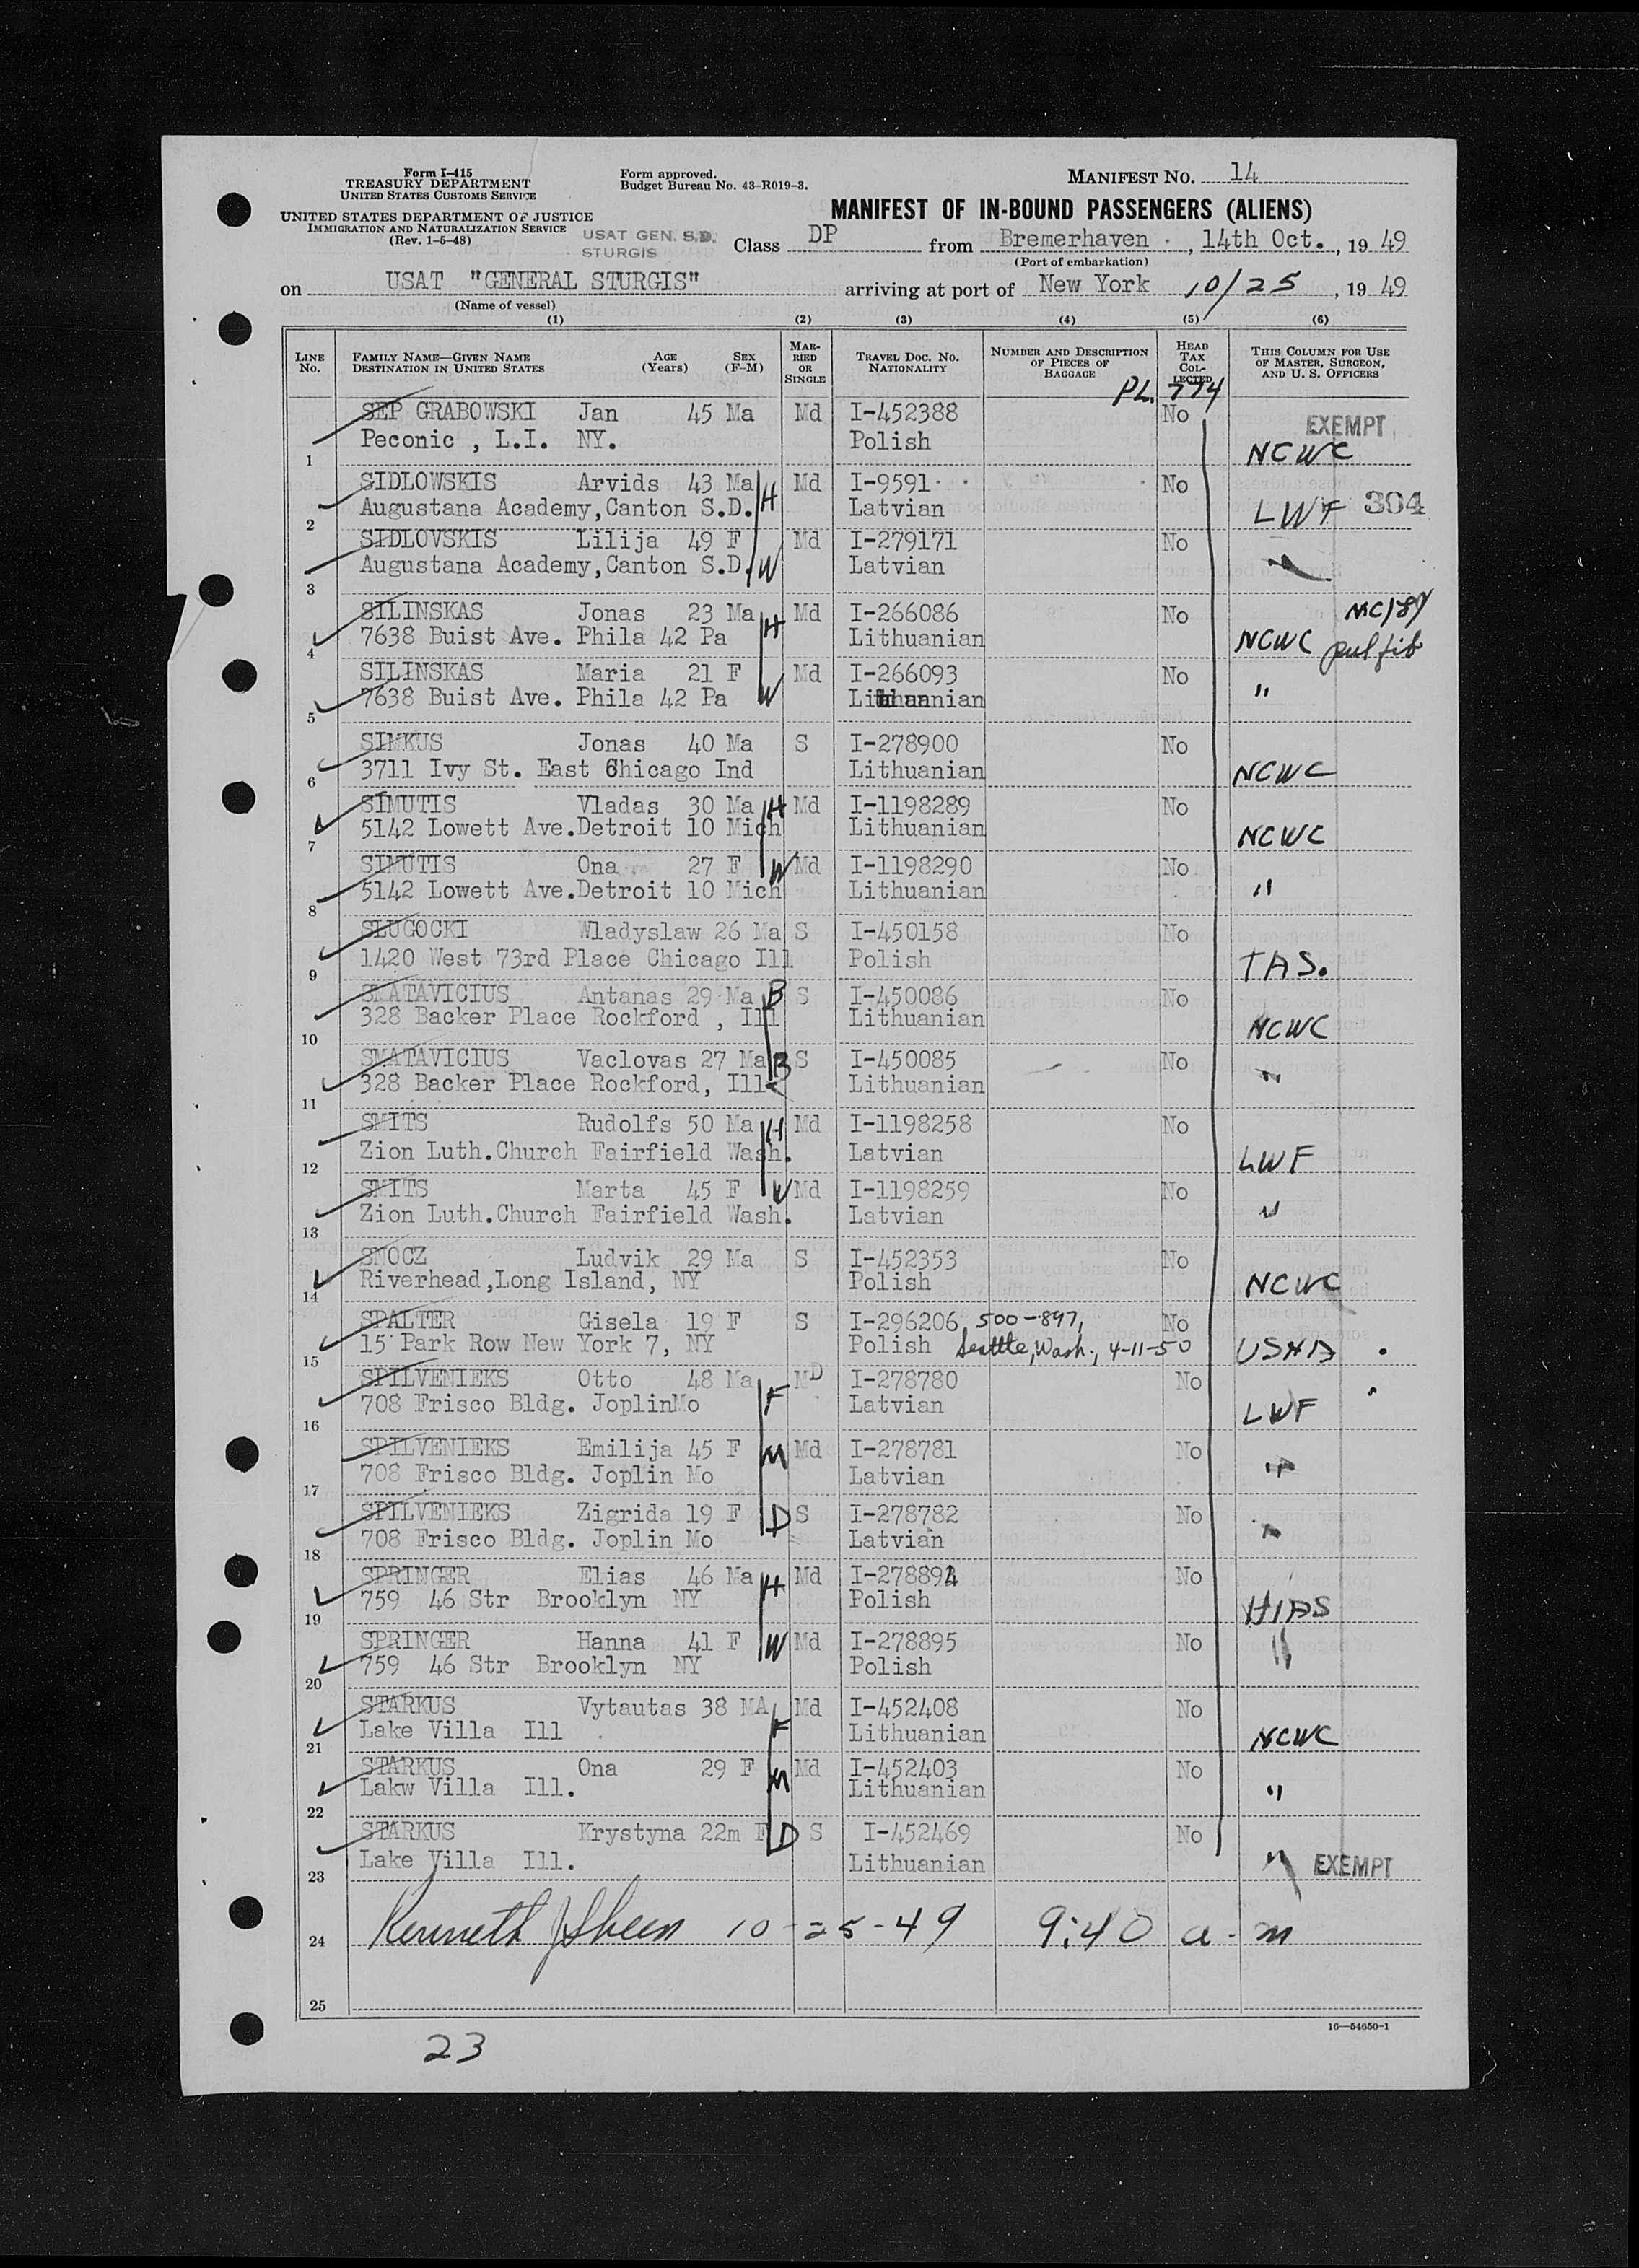 Form I-415
TREASURY DEPARTMENT
UNITED STATES CUSTOMS SERVICE
UNITED STATES DEPARTMENT OF JUSTICE
IMMIGRATION AND NATURALIZATION SERVICE
(Rev. 1-5-48)
Form approved.
Budget Bureau No. 43-R019-3.
MANIFEST NO. 14
MANIFEST OF IN-BOUND PASSENGERS (ALIENS)
USAT GEN. S.D.
STURGIS
Class DP from Bremerhaven, 14th Oct., 1949
(Port of embarkation)
on USAT "GENERAL STURGIS" arriving at port of New York 10/25, 1949
(Name of vessel)
(1) (2) (3) (4) (5) (6)
LINE No.
FAMILY NAME—GIVEN NAME AGE (Years) SEX (F-M)
DESTINATION IN UNITED STATES
MARRIED OR SINGLE
TRAVEL DOC. NO. NATIONALITY
NUMBER AND DESCRIPTION OF PIECES OF BAGGAGE
HEAD TAX COLLECTED
THIS COLUMN FOR USE OF MASTER, SURGEON, AND U. S. OFFICERS
PL. 774
SEP GRABOWSKI Jan 45 Ma Md I-452388 No EXEMPT
1 Peconic , L.I. NY. Polish NCWC
SIDLOWSKIS Arvids 43 Ma H Md I-9591 No
2 Augustana Academy,Canton S.D. Latvian LWF 304
SIDLOVSKIS Lilija 49 F W Md I-279171 No
3 Augustana Academy,Canton S.D. Latvian "
SILINSKAS Jonas 23 Ma H Md I-266086 No
4 7638 Buist Ave. Phila 42 Pa Lithuanian NCWC pul fib
SILINSKAS Maria 21 F W Md I-266093 No
5 7638 Buist Ave. Phila 42 Pa Lithuanian "
SIMKUS Jonas 40 Ma S I-278900 No
6 3711 Ivy St. East Chicago Ind Lithuanian NCWC
SIMUTIS Vladas 30 Ma H Md I-1198289 No
7 5142 Lowett Ave.Detroit 10 Mich Lithuanian NCWC
SIMUTIS Ona 27 F W Md I-1198290 No
8 5142 Lowett Ave.Detroit 10 Mich Lithuanian "
SLUGOCKI Wladyslaw 26 Ma S I-450158 No
9 1420 West 73rd Place Chicago Ill Polish TAS.
SMATAVICIUS Antanas 29 Ma B S I-450086 No
10 328 Backer Place Rockford , Ill Lithuanian NCWC
SMATAVICIUS Vaclovas 27 Ma B S I-450085 No
11 328 Backer Place Rockford, Ill Lithuanian "
SMITS Rudolfs 50 Ma H Md I-1198258 No
12 Zion Luth.Church Fairfield Wash. Latvian LWF
SMITS Marta 45 F W Md I-1198259 No
13 Zion Luth.Church Fairfield Wash. Latvian "
SMOCZ Ludvik 29 Ma S I-452353 No
14 Riverhead,Long Island, NY Polish NCWC
SPALTER Gisela 19 F S I-296206 500-897, No
15 15 Park Row New York 7, NY Polish Seattle, Wash., 4-11-50 USNA
SPILVENIEKS Otto 48 Ma F MD I-278780 No
16 708 Frisco Bldg. JoplinMo Latvian LWF
SPILVENIEKS Emilija 45 F M Md I-278781 No
17 708 Frisco Bldg. Joplin Mo Latvian "
SPILVENIEKS Zigrida 19 F D S I-278782 No
18 708 Frisco Bldg. Joplin Mo Latvian "
SPRINGER Elias 46 Ma H Md I-278894 No
19 759 46 Str Brooklyn NY Polish HIAS
SPRINGER Hanna 41 F W Md I-278895 No
20 759 46 Str Brooklyn NY Polish "
STARKUS Vytautas 38 MA F Md I-452408 No
21 Lake Villa Ill Lithuanian NCWC
STARKUS Ona 29 F M Md I-452403 No
22 Lakw Villa Ill. Lithuanian "
STARKUS Krystyna 22m F D S I-452469 No
23 Lake Villa Ill. Lithuanian " EXEMPT
24 Kenneth J 10-25-49 9:40 a.m
25
16—54650-1
23